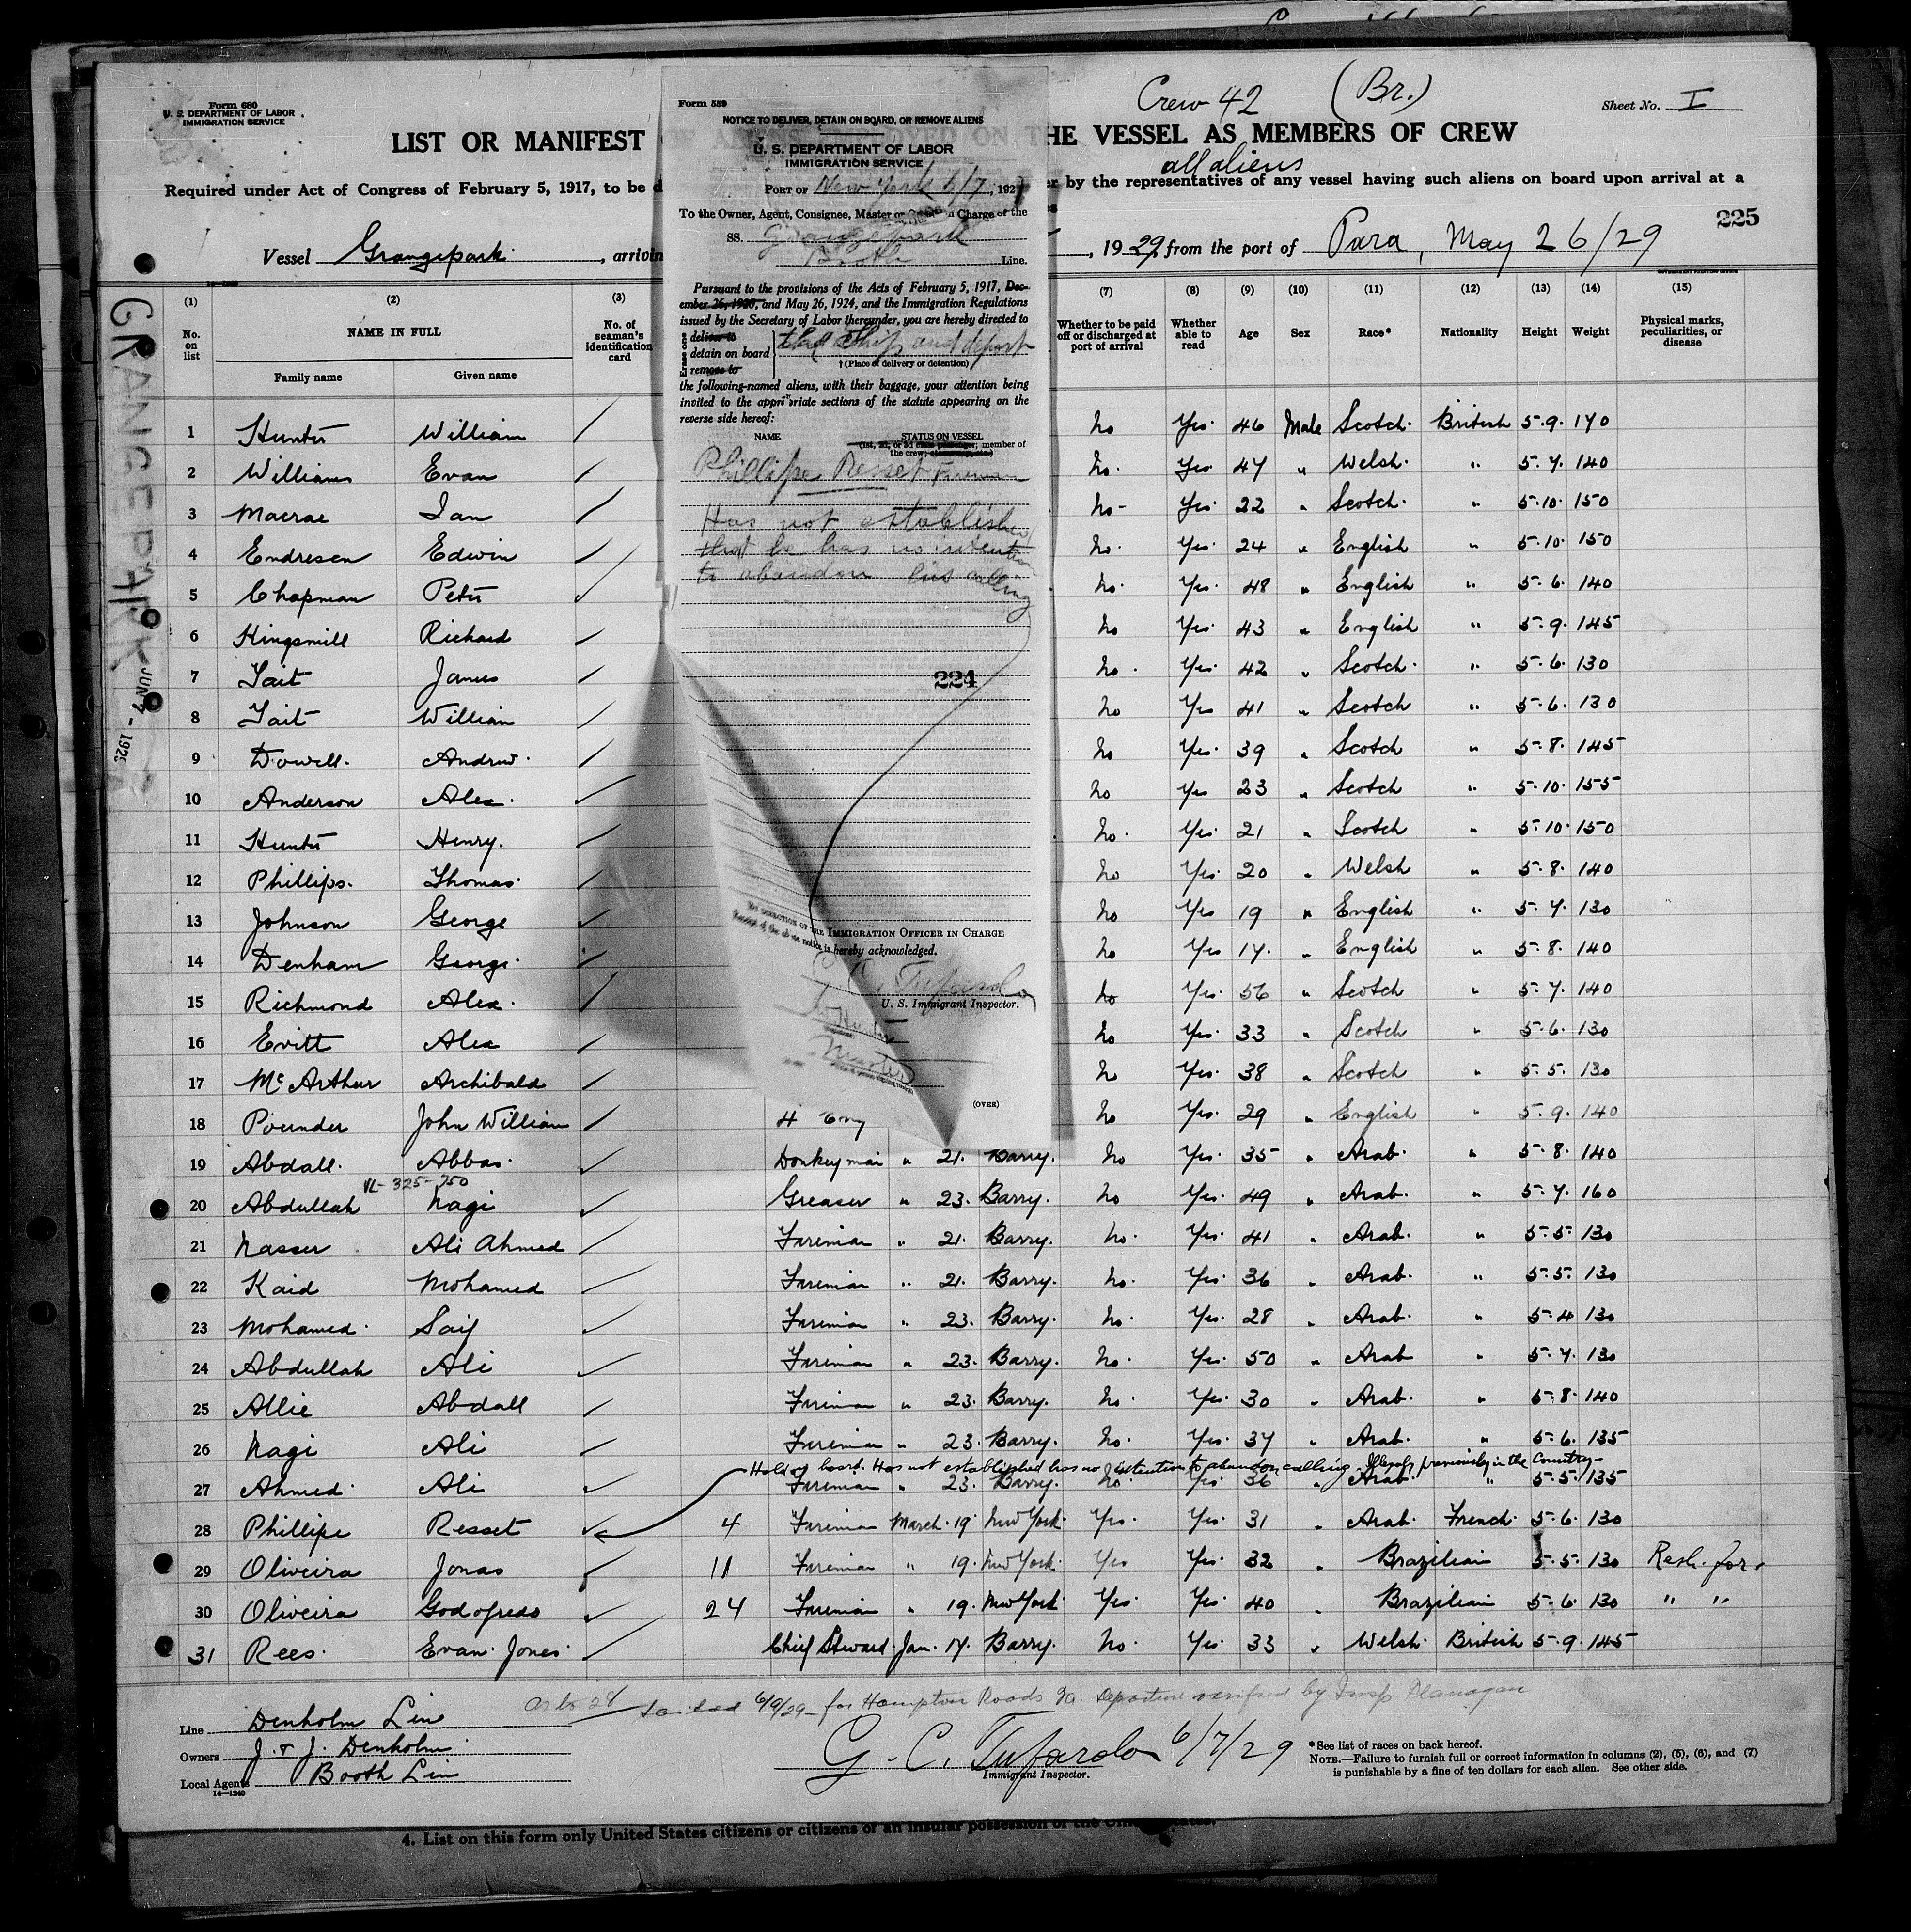 Form 680
U. S. DEPARTMENT OF LABOR
IMMIGRATION SERVICE
Crew 42 (Br.)
Sheet No. I
LIST OR MANIFEST
THE VESSEL AS MEMBERS OF CREW
all aliens
Required under Act of Congress of February 5, 1917, to be d
er by the representatives of any vessel having such aliens on board upon arrival at a
225
Vessel Grangepark, arrivin
, 1929, from the port of Para, May 26/29
GRANGEPARK JUN 7 - 192
Form 559
NOTICE TO DELIVER, DETAIN ON BOARD, OR REMOVE ALIENS
U. S. DEPARTMENT OF LABOR
IMMIGRATION SERVICE
PORT OF New York 6/7, 192
To the Owner, Agent, Consignee, Master or Charge of the
SS. Grangepark
Booth Line.
Pursuant to the provisions of the Acts of February 5, 1917, Dec-
ember 26, 1920, and May 26, 1924, and the Immigration Regulations
issued by the Secretary of Labor thereunder, you are hereby directed to
Erase one
deliver to
detain on board
remove to
that Ship and deport
† (Place of delivery or detention)
the following-named aliens, with their baggage, your attention being
invited to the appropriate sections of the statute appearing on the
reverse side hereof:
NAME STATUS ON VESSEL
(1st, 2d, or 3d class passenger; member of
the crew; stowaway, etc.)
Phillipe Resset Fireman
Has not establish
that he has no intention
to abandon his calling
224
BY DIRECTION OF THE IMMIGRATION OFFICER IN CHARGE
Receipt of the above notice is hereby acknowledged.
G. C. Tufarolo
U. S. Immigrant Inspector.
Master
(OVER)
(1) (2) (3) (7) (8) (9) (10) (11) (12) (13) (14) (15)
No. on list NAME IN FULL No. of seaman's identification card Whether to be paid off or discharged at port of arrival Whether able to read Age Sex Race* Nationality Height Weight Physical marks, peculiarities, or disease
Family name Given name
1 Hunter William no Yes 46 Male Scotch British 5.9. 170
2 Williams Evan no. Yes 47 " Welsh " 5.7. 140
3 Macrae Ian no- Yes 22 " Scotch " 5.10. 150
4 Endresen Edwin no. Yes 24 " English " 5.10. 150
5 Chapman Peter no. Yes 48 " English " 5.6. 140
6 Kingsmill Richard no Yes 43 " English " 5.9. 145
7 Tait James no. Yes 42 " Scotch " 5.6. 130
8 Tait William no Yes 41 " Scotch " 5.6. 130
9 Dowell. Andrew. no Yes 39 " Scotch " 5.8. 145
10 Anderson Alex. no Yes 23 " Scotch " 5.10. 155
11 Hunter Henry. no. Yes 21 " Scotch " 5.10. 150
12 Phillips. Thomas. no Yes 20 " Welsh " 5.8. 140
13 Johnson George no Yes 19 " English " 5.7. 130
14 Denham George. no Yes 17. " English " 5.8. 140
15 Richmond Alex. no Yes 56 " Scotch " 5.7. 140
16 Evitt Alex no Yes 33 " Scotch " 5.6. 130
17 McArthur Archibald no Yes 38 " Scotch " 5.5. 130
18 Pounder John William 4 Eng no Yes 29 " English " 5.9. 140
19 Abdall. Abbas. Donkeyman " 21. Barry. no Yes 35 " Arab. " 5.8. 140
VL-325-750
20 Abdullah Nagi Greaser " 23. Barry. no Yes 49 " Arab. " 5.7. 160
21 Nasser Ali Ahmed Fireman " 21. Barry. no. Yes 41 " Arab. " 5.5. 130
22 Kaid Mohamed Fireman " 21. Barry. no. Yes 36 " Arab. " 5.5. 130
23 Mohamed. Saif Fireman " 23. Barry. no. Yes 28 " Arab. " 5.4 130
24 Abdullah Ali Fireman " 23. Barry. no. Yes 50 " Arab " 5.7. 130
25 Allie Abdall Fireman " 23. Barry. no. Yes 30 " Arab. " 5.8. 140
26 Nagi Ali Fireman " 23. Barry. no. Yes 37 " Arab. " 5.6. 135
Hold on board. Has not established has no intention to abandon calling. Illegally previously in the Country-
27 Ahmed. Ali Fireman " 23. Barry. no. Yes 36 " Arab. " 5.5. 135
28 Phillipe Resset 4 Fireman March. 19. New York. Yes. Yes. 31 " Arab. French. 5.6. 130
29 Oliveira Jonas 11 Fireman " 19. New York. Yes Yes. 32 " Brazilian 5.5. 130
30 Oliveira Godofredo 24 Fireman " 19. New York. Yes. Yes. 40 " Brazilian 5.6. 130 " "
31 Rees. Evan Jones. Chief Steward. Jan. 17. Barry. no. Yes. 33 " Welsh. British 5.9. 145
as to 28 sailed 6/9/29 - for Hampton Roads Va. Departure verified by Insp Flanagan
Line Denholm Line
Owners J. & J. Denholm.
Local Agents Booth Line
14—1240
G. C. Tufarolo 6/7/29
Immigrant Inspector.
*See list of races on back hereof.
NOTE.—Failure to furnish full or correct information in columns (2), (5), (6), and (7)
is punishable by a fine of ten dollars for each alien. See other side.
4. List on this form only United States citizens or citizens of an insular possession of the United States.